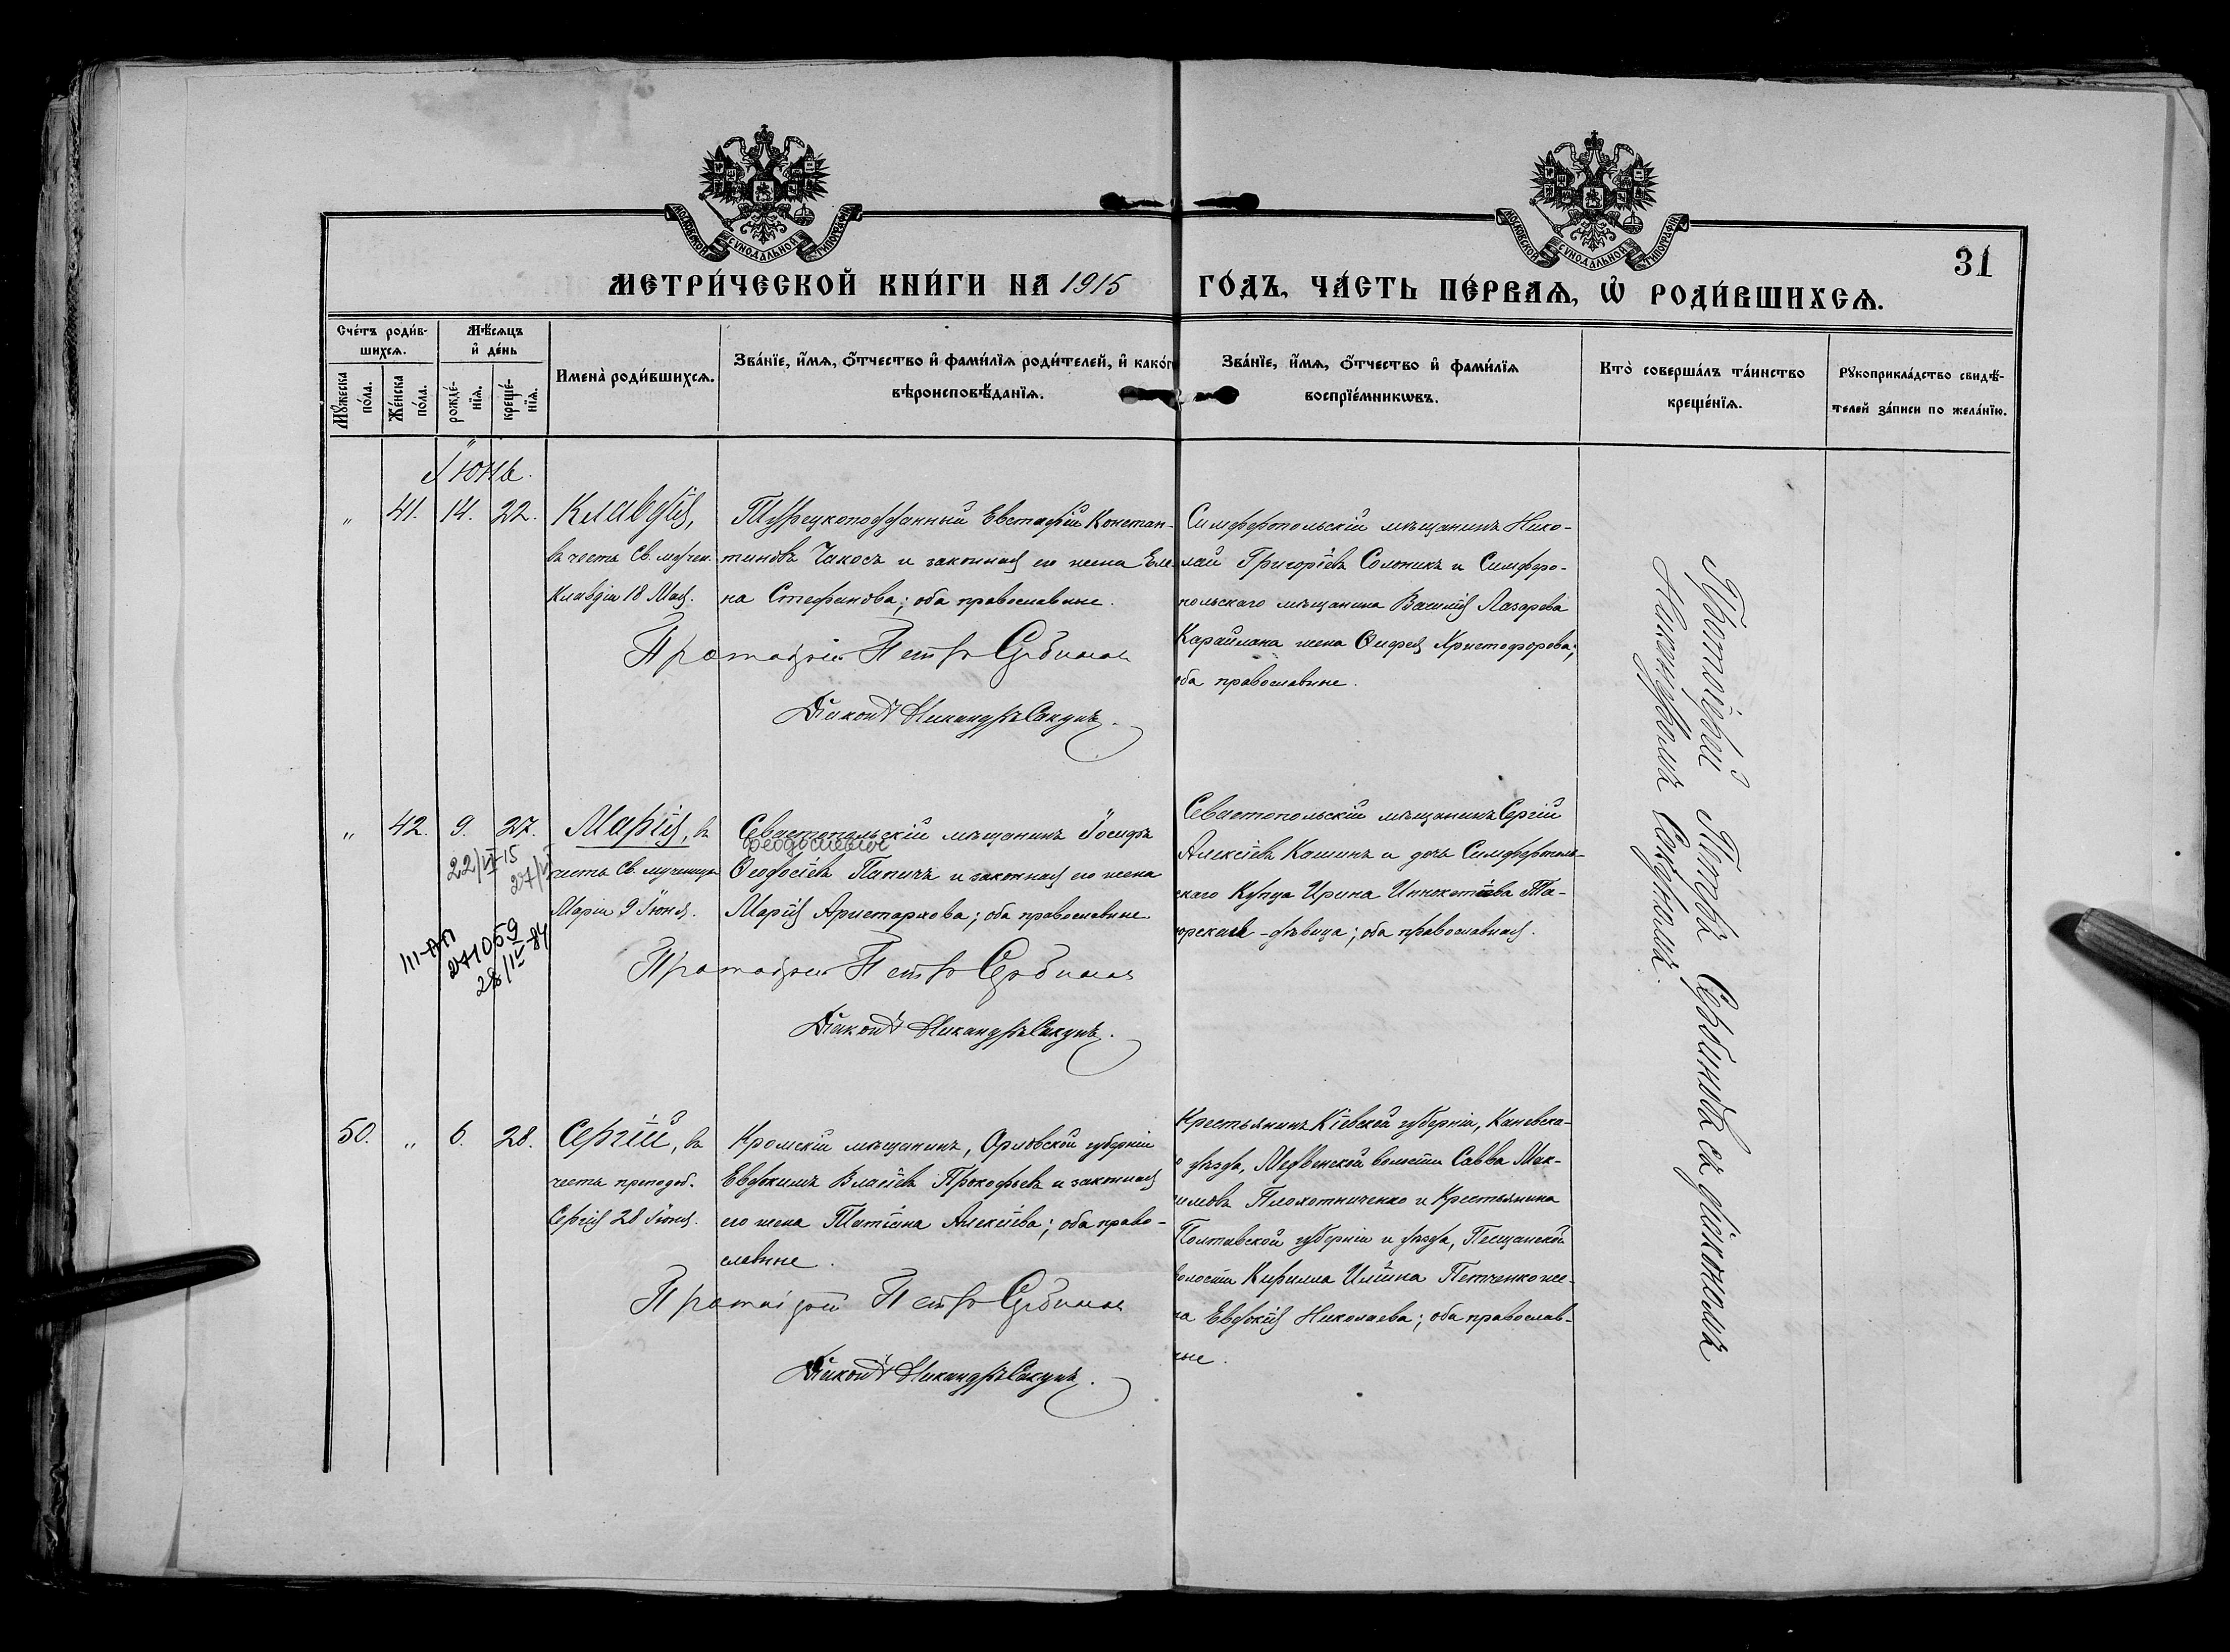 МОСКОВСКОЙ СѴНОДАЛЬНОЙ ТИПОГРАФІИ
МОСКОВСКОЙ СѴНОДАЛЬНОЙ ТИПОГРАФІИ
31
МЕТРИ́ЧЕСКОЙ КНИ́ГИ НА 1915 ГО́ДЪ, ЧА́СТЬ ПЕ́РВАѦ, Ѡ РОДИ́ВШИХСѦ.
Сче́тъ роди́в-
шихсѧ.
Мꙋ́жеска
по́ла.
Же́нска
по́ла.
Мѣ́сѧцъ
и҆ де́нь
рожде́-
нїѧ.
креще́-
нїѧ.
Имена̀ роди́вшихсѧ.
Зва́нїе, и҆́мѧ, ѻ҆́тчество и҆ фами́лїѧ роди́телей, и҆ како́гѡ
вѣроисповѣ́данїѧ.
Зва́нїе, и҆́мѧ, ѻ҆́тчество и҆ фами́лїѧ
воспрїе́мникѡвъ.
Кто̀ соверша́лъ та́инство
креще́нїѧ.
Рꙋкоприкла́дство свидѣ́-
телей за́писи по жела́нїю.
Іюнь.
" 41. 14. 22.
Клавдія,
въ честь Св. мучен.
Клавдіи 18 Мая.
Турецкоподданный Евстафій Констан-
тиновъ Чакосъ и законная его жена Еле-
на Стефанова; оба православные.
Протоіерей Петръ Сербиновъ
Діаконъ Никандръ Сакунъ.
Симферопольскій мѣщанинъ Нико-
лай Григоріевъ Солоникъ и Симферо-
польскаго мѣщанина Василія Лазарева
Карайлана жена Христофорова;
оба православные.
" 42. 9. 27.
22/VI-15
27/VI
III-АП
271059
28/IV-84
Марія, въ
честь Св. мученицы
Маріи 9 Іюня.
Севастопольскій мѣщанинъ Іосифъ
Феодосіевич
Ѳеодосіевъ Папичъ и законная его жена
Марія Аристархова; оба православные.
Протоіерей Петръ Сербиновъ
Діаконъ Никандръ Сакунъ.
Севастопольскій мѣщанинъ Сергій
Алексіевъ Кашинъ и дочь Симферополь-
скаго Купца Ирина Иннокетіева
-дѣвица; оба православная.
50. " 6. 28.
Сергій, въ
честь преподоб.
Сергія 28 Іюня.
Кромскій мѣщанинъ, Орловской губерніи
Евдокимъ Власіевъ Прокофьевъ и законная
его жена Татіана Алексіева; оба право-
славные.
Протоіерей Петръ Сербиновъ
Діаконъ Никандръ Сакунъ.
Крестьянинъ Кіевской губерніи, Каневска-
го уѣзда, Медвенской волости Савва Мак-
симовъ Плохотниченко и Крестьянина
Полтавской губерніи и уѣзда, Пещанской
волости Кирилла Иліина Петченко же-
на Евдокія Николаева; оба православ-
ные.
Протоіерей Петръ Сербиновъ съ діакономъ
Никандромъ Сакуномъ.